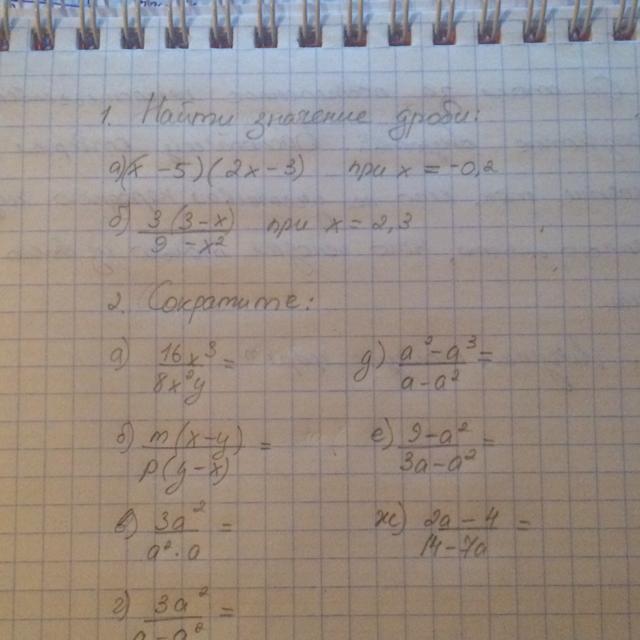 1. Найти значение дроби:
а) (x - 5)(2x - 3) при x = -0,2
б) 3(3 - x) / 9 - x² при x = 2,3
2. Сократите:
а) 16x³ / 8x²y =
д) a² - a³ / a - a² =
б) m(x - y) / p(y - x) =
е) 9 - a² / 3a - a² =
в) 3a² / a² · a =
ж) 2a - 4 / 14 - 7a =
г) 3a² / a - a² =